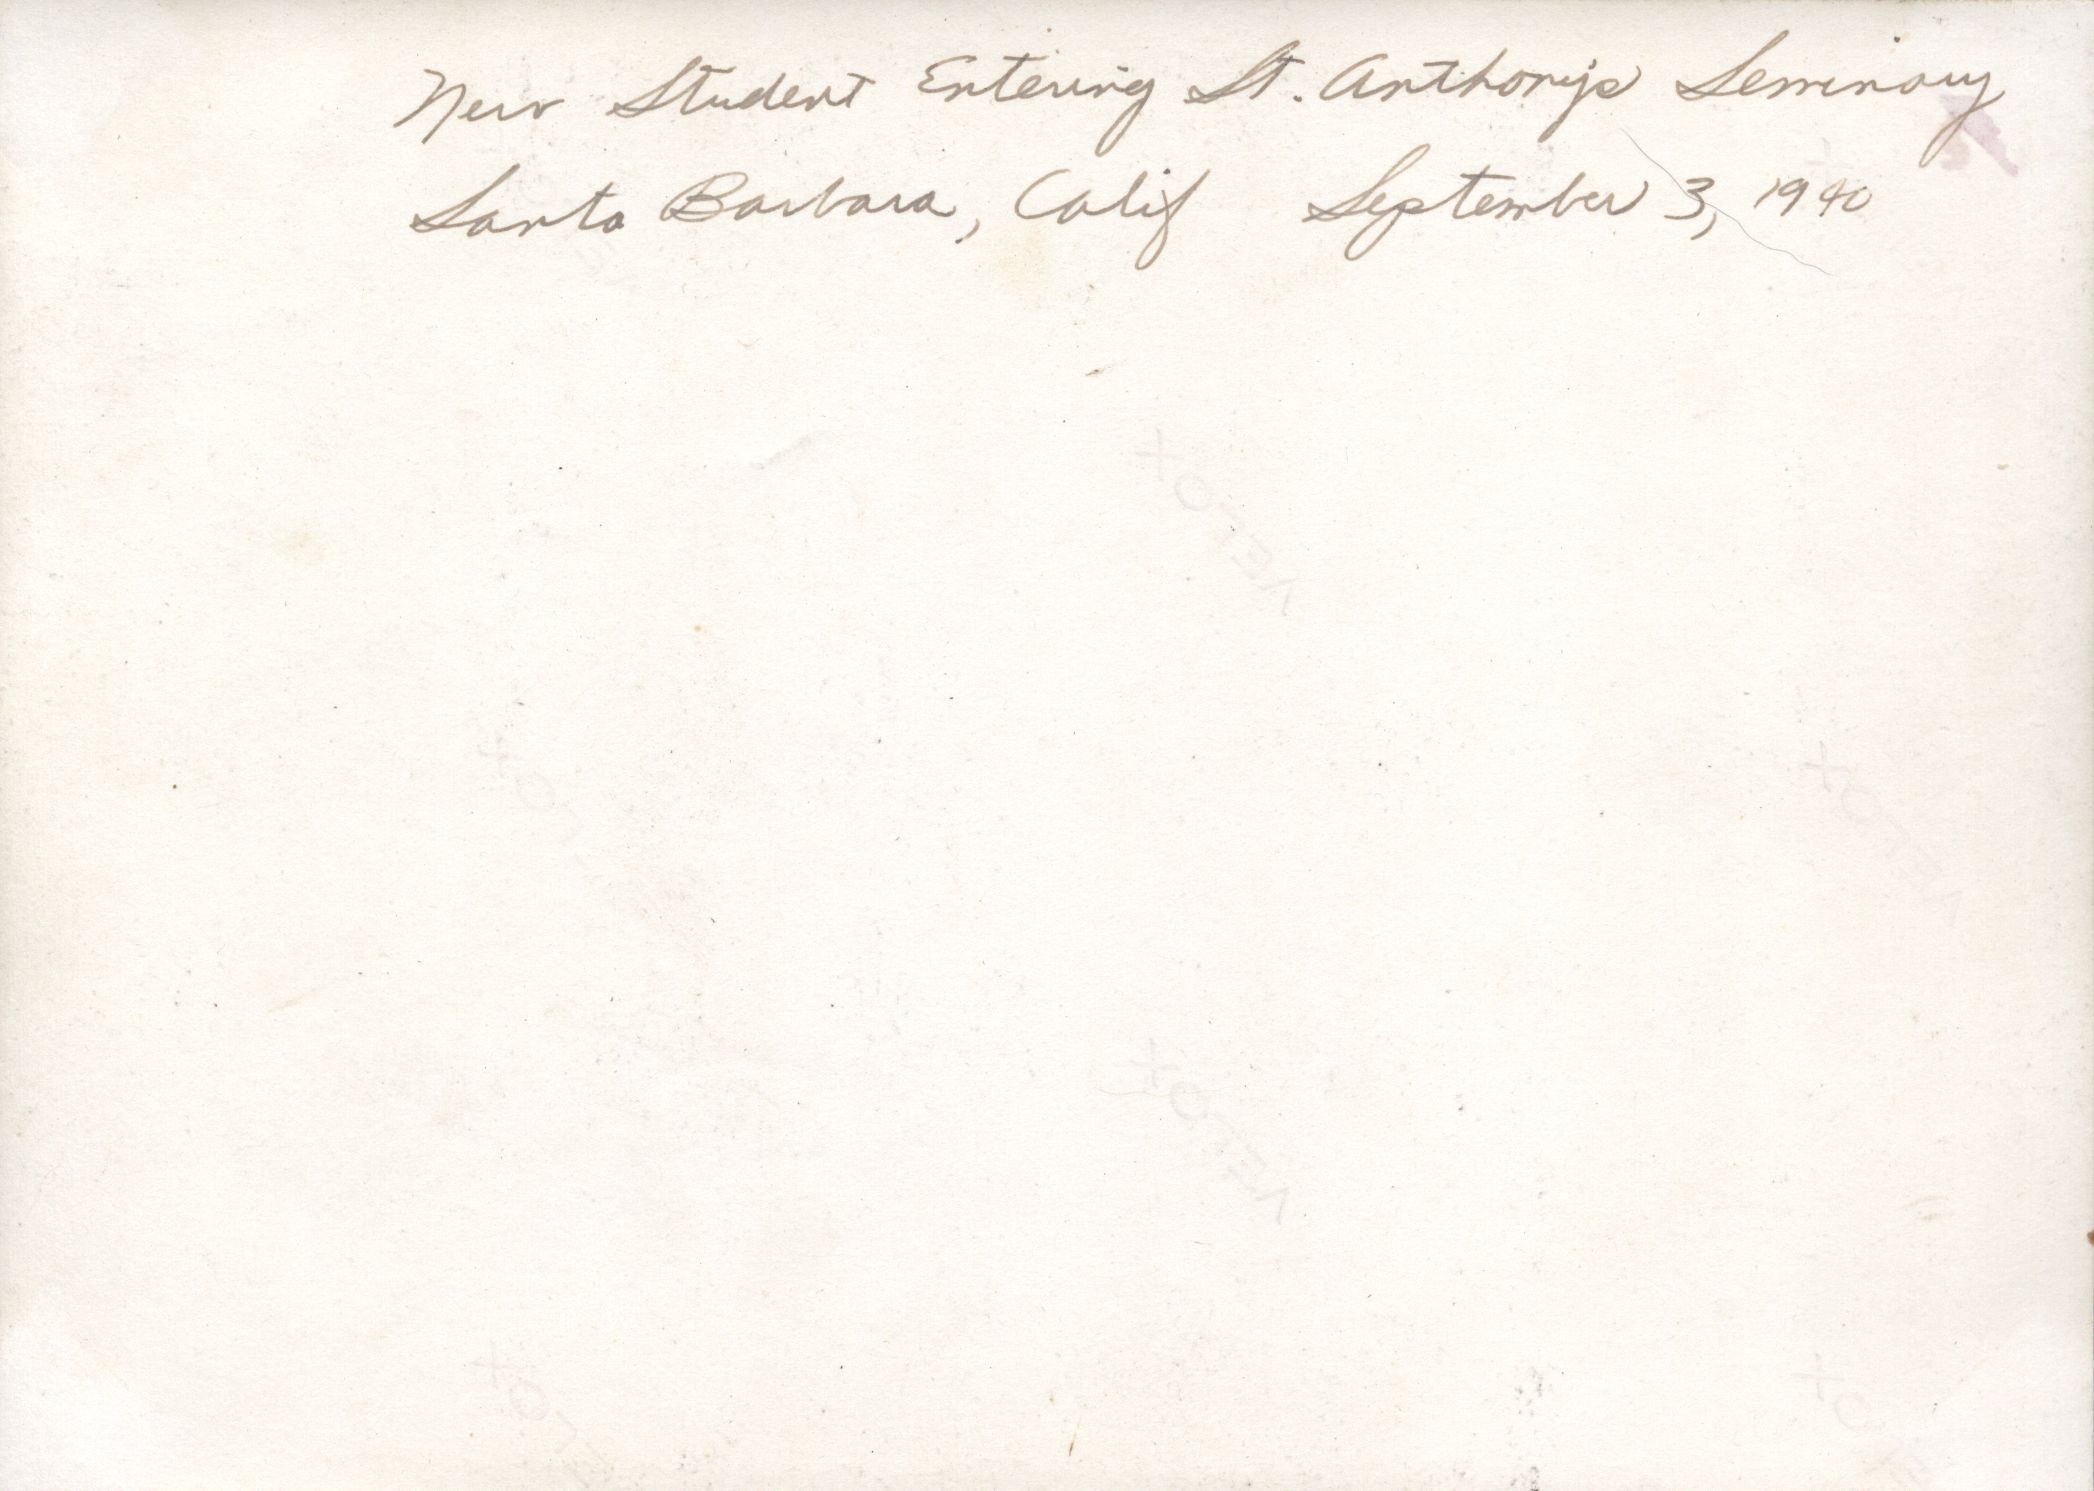 New Student Entering St. Anthony's Seminary
Santa Barbara, Calif September 3, 1940
VELOX
VELOX
VELOX
VELOX